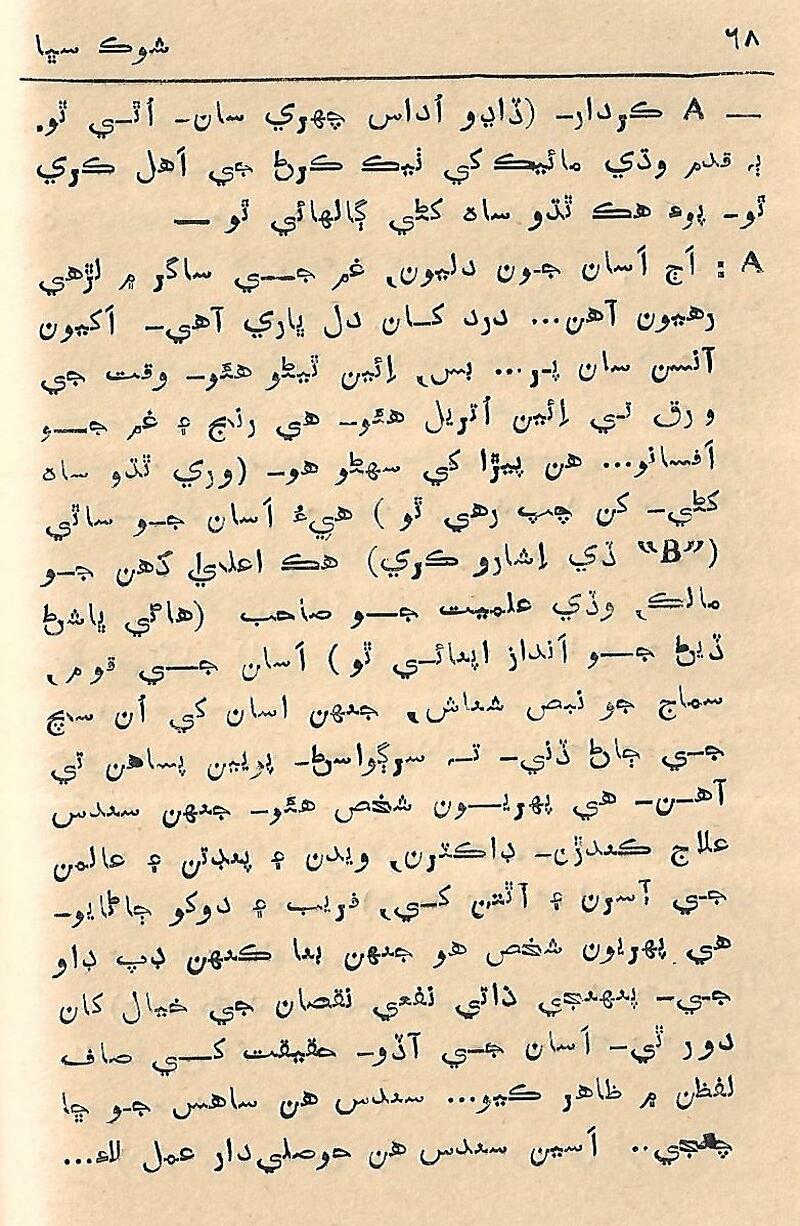 ٦٨ شوڪ سڀا
— A ڪردار- (ڏاڍو اُداس چهري سان- اُٿي ٿو.
ٻہ قدم وڌي مائيڪ کي ٺيڪ ڪرڻ جي اَهل ڪري
ٿو- پوءِ هڪ ٿڌو ساہ کڻي ڳالهائي ٿو —
A : اَڄ اَسان جون دليون، غم جي ساگر ۾ لڙهي
رهيون آهن... درد کان دل ڀاري آهي- اَکيون
آنسن سان پر... بس، اِئين ٿيڻو هئو- وقت جي
ورق تي اِئين اُتريل هئو- هي رنج ۽ غم جو
اَفسانو... هن پيڙا کي سهڻو هو- (وري ٿڌو ساہ
کڻي- کن چپ رهي ٿو ) هيءُ اَسان جو ساٿي
(“B” ڏي اِشارو ڪري) هڪ اعليٰ ذهن جو
مالڪ، وڏي علميت جو صاحب (هاڻي ڀاشڻ
ڏيڻ جو اَنداز اپنائي ٿو ) اَسان جي قوم،
سماج جو نبض شناش، جنهن اسان کي اُن سچ
جي ڄاڻ ڏني- تہ سرڳواسڻ- پويين پساهن تي
آهن- هي پهريون شخص هئو- جنهن سندس
علاج ڪندڙن- ڊاڪٽرن، ويدن ۽ پنڊتن ۽ عالمن
جي آسرن ۽ آٿتن کي، فريب ۽ دوکو ڄاڻايو-
هي پهريون شخص هو جنهن بنا ڪنهن ڊپ ڊاو
جي- پنهنجي ذاتي نفعي نقصان جي خيال کان
دور ٿي- اَسان جي آڏو- حقيقت کي صاف
لفظن ۾ ظاهر ڪيو... سندس هن ساهس جو ڇا
چئجي.. اَسين سندس هن حوصلي‌دار عمل لاءِ...